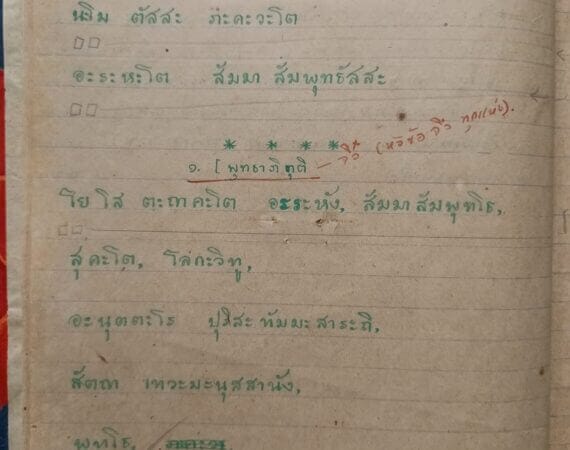 นะโม ตัสสะ ภะคะวะโต
อะระหะโต สัมมา สัมพุทธัสสะ
* * * *
๑. [ พุทธาภิถุติ – จื๋อ (หัวข้อ จื๋อ ทุกแห่ง).
โย โส ตะถาคะโต อะระหัง, สัมมาสัมพุทโธ,
สุคะโต, โลกะวิทู,
อะนุตตะโร ปุริสะทัมมะสาระถิ,
สัตถา เทวะมะนุสสานัง,
พุทโธ,